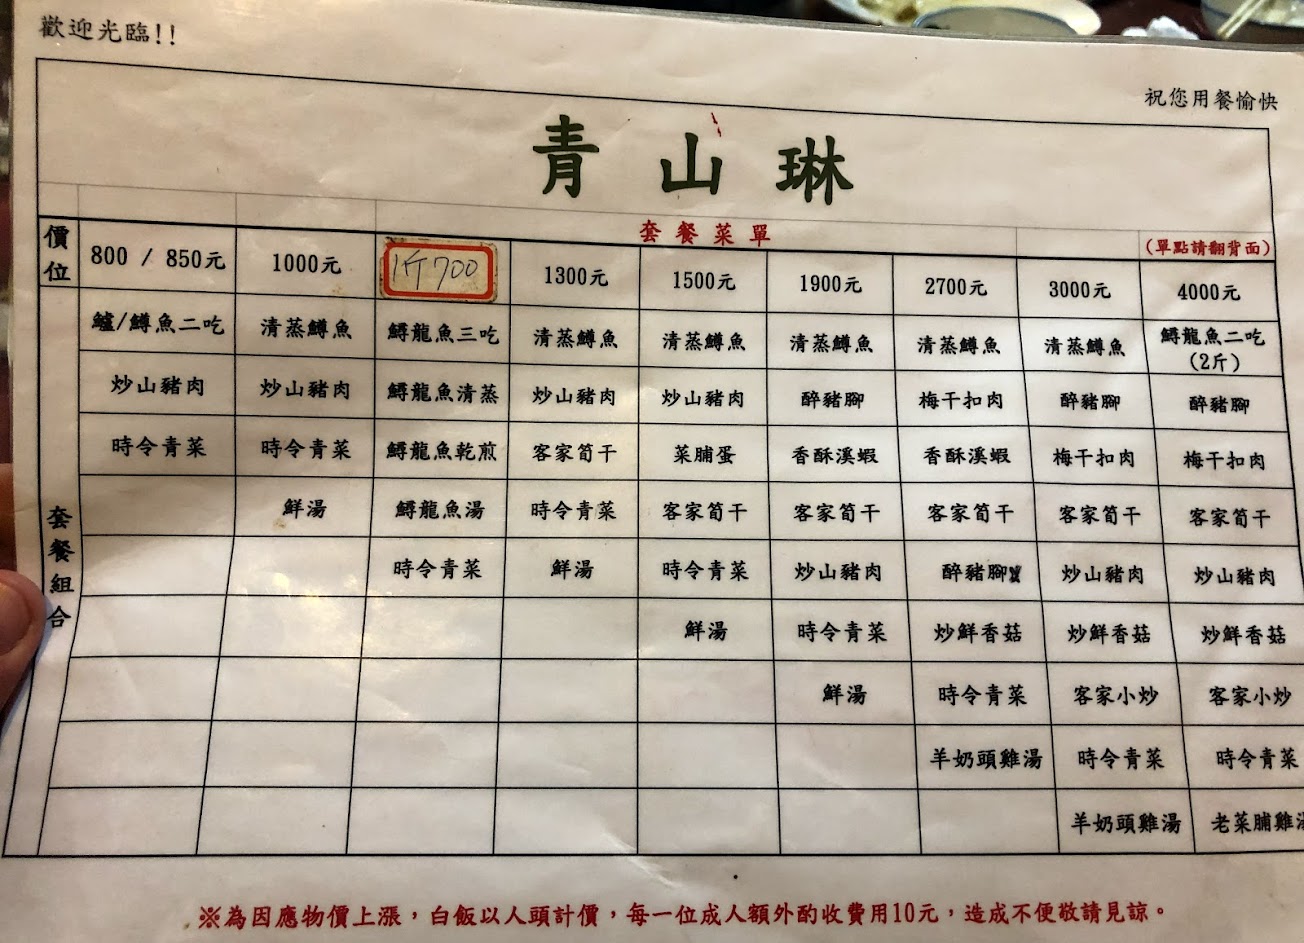 歡迎光臨!!
祝您用餐愉快
青山琳
套餐菜單
(單點請翻背面)
價位 800 / 850元 1000元 1斤700 1300元 1500元 1900元 2700元 3000元 4000元
套餐組合
鱸/鱒魚二吃 清蒸鱒魚 鱘龍魚三吃 清蒸鱒魚 清蒸鱒魚 清蒸鱒魚 清蒸鱒魚 清蒸鱒魚 鱘龍魚二吃
(2斤)
炒山豬肉 炒山豬肉 鱘龍魚清蒸 炒山豬肉 炒山豬肉 醉豬腳 梅干扣肉 醉豬腳 醉豬腳
時令青菜 時令青菜 鱘龍魚乾煎 客家筍干 菜脯蛋 香酥溪蝦 香酥溪蝦 梅干扣肉 梅干扣肉
鮮湯 鱘龍魚湯 時令青菜 客家筍干 客家筍干 客家筍干 客家筍干 客家筍干
時令青菜 鮮湯 時令青菜 炒山豬肉 醉豬腳 炒山豬肉 炒山豬肉
鮮湯 時令青菜 炒鮮香菇 炒鮮香菇 炒鮮香菇
鮮湯 時令青菜 客家小炒 客家小炒
羊奶頭雞湯 時令青菜 時令青菜
羊奶頭雞湯 老菜脯雞湯
※為因應物價上漲，白飯以人頭計價，每一位成人額外酌收費用10元，造成不便敬請見諒。